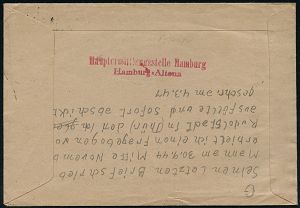 Hauptermittlungsstelle Hamburg
Hamburg-Altona
Seinen letzten Brief schrieb
Mann am 30.9.44 Mitte Novemb
erhielt ich einen Fragebogen vo
Rudolstadt in Thür. den ich
ausfüllte und sofort abschickt
geschr. am 4.3.47